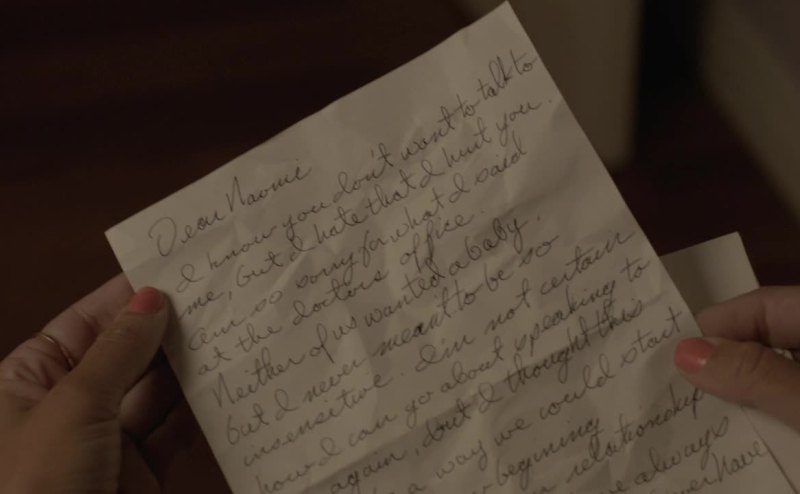 Dear Naomi
I know you don't want to talk to
me, but I hate that I hurt you.
am so sorry for what I said
at the doctors office.
Neither of us wanted a baby,
but I never meant to be so
insensitive. I'm not certain
how I can go about speaking to
again, but I thought this
a way we could start
beginning
relationship
always
have